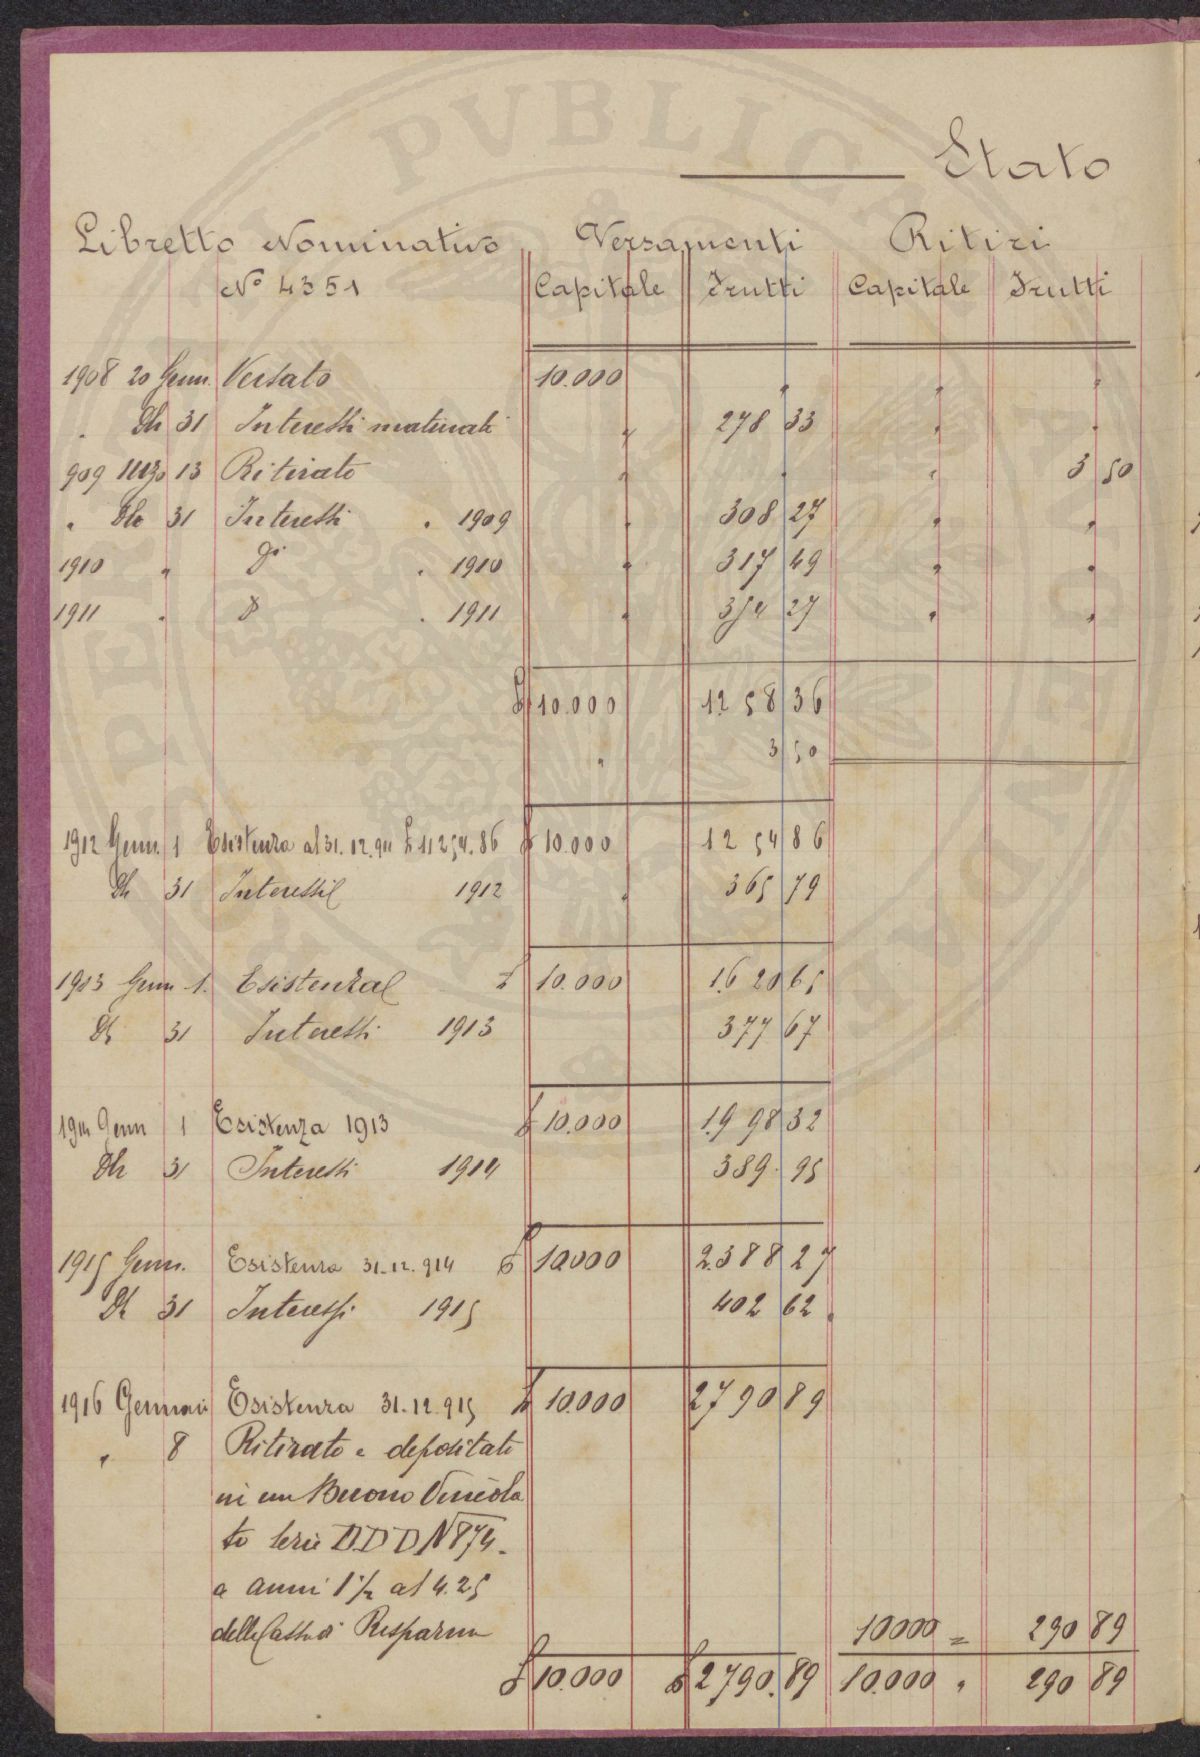 Stato
Libretto Nominativo Versamenti Ritiri
No 4351 Capitale Frutti Capitale Frutti
1908 20 Genn. Versato 10.000 " " "
" Dbr 31 Interessi maturati " 278 33 " "
909 Mrzo 13 Ritirato " " " 3 50
" Dbr 31 Interessi " 1909 " 308 27 " "
1910 " Di " 1910 " 317 49 " "
1911 " D " 1911 " 354 27 " "
£ 10.000 1258 36
" 3 50
1912 Genn. 1 Esistenza al 31.12.911 £ 11254.86 £ 10.000 1254 86
Dbr 31 Interessi 1912 " 365 79
1913 Genn 1. Esistenza £ 10.000 1620 65
Db 31 Interessi 1913 377 67
1914 Genn 1 Esistenza 1913 £ 10.000 1998 32
Dbr 31 Interessi 1914 389 95
1915 Genn. Esistenza 31.12.914 £ 10000 2388 27
Db 31 Interessi 1915 402 62
1916 Gennaio Esistenza 31.12.915 £ 10.000 2790 89
" 8 Ritirato e depositato
in un Buono Vincola
to serie D.D.D N 874.
a anni 1 1/2 al 4.25
della Cassa di Risparmio 10000 = 290 89
£ 10.000 £ 2790.89 10.000 " 290 89